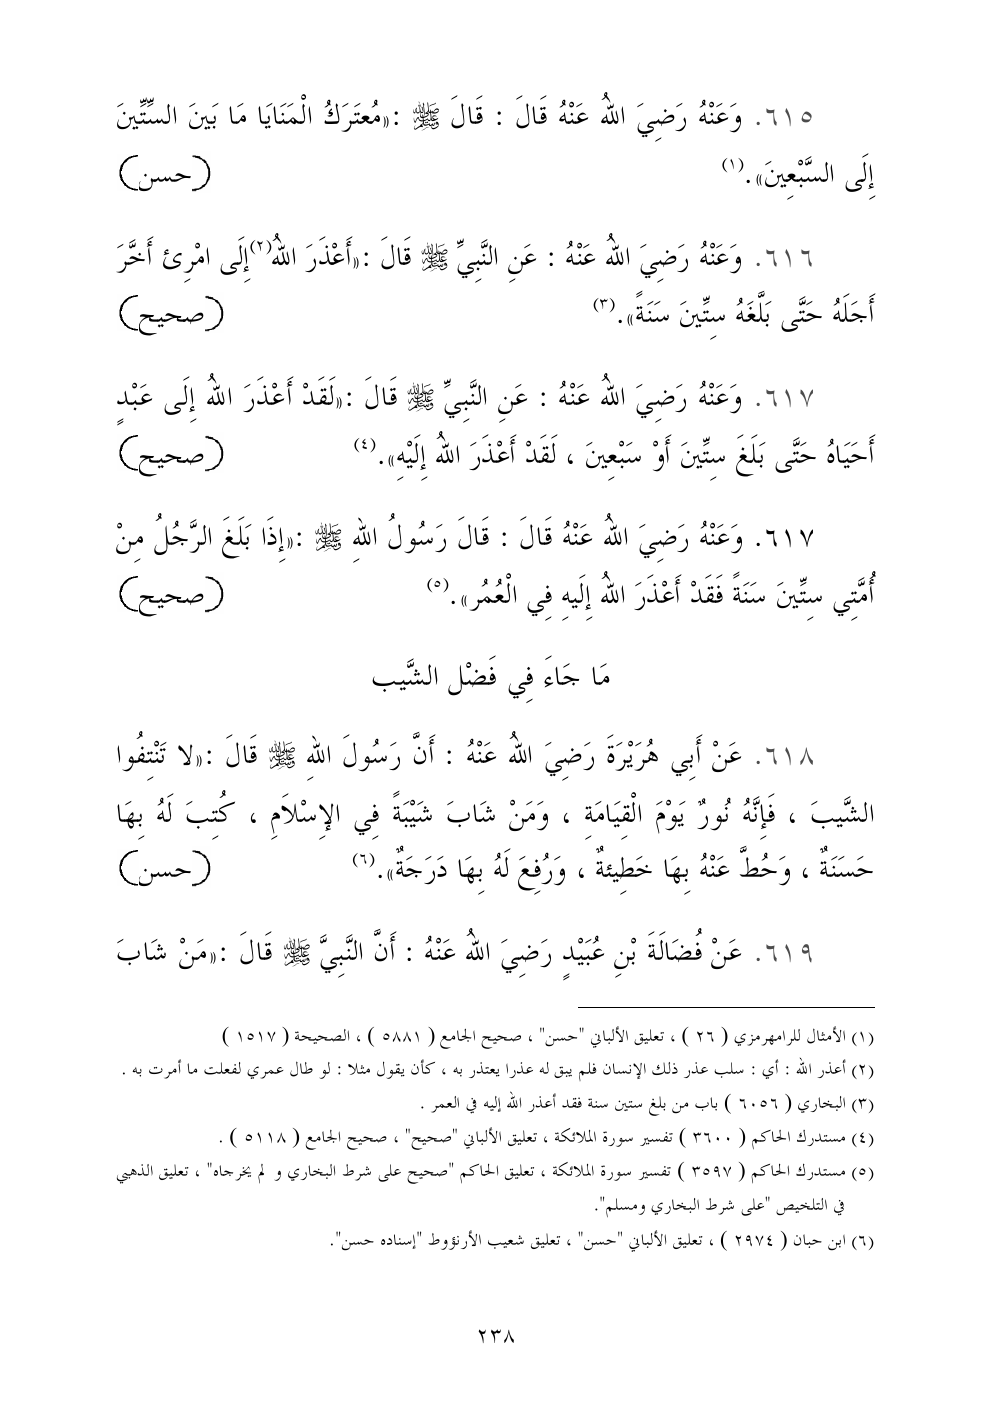 ٦١٥. وَعَنْهُ رَضِيَ اللهُ عَنْهُ قَالَ : قَالَ ﷺ :«مُعتَرَكُ الْمَنَايَا مَا بَينَ السِّتِّينَ
إِلَى السَّبْعِينَ».(١) (حسن)
٦١٦. وَعَنْهُ رَضِيَ اللهُ عَنْهُ : عَنِ النَّبِيِّ ﷺ قَالَ :«أَعْذَرَ اللهُ(٢)إِلَى امْرِئ أَخَّرَ
أَجَلَهُ حَتَّى بَلَّغَهُ سِتِّينَ سَنَةً».(٣) (صحيح)
٦١٧. وَعَنْهُ رَضِيَ اللهُ عَنْهُ : عَنِ النَّبِيِّ ﷺ قَالَ :«لَقَدْ أَعْذَرَ اللهُ إِلَى عَبْدٍ
أَحَيَاهُ حَتَّى بَلَغَ سِتِّينَ أَوْ سَبْعِينَ ، لَقَدْ أَعْذَرَ اللهُ إِلَيْهِ».(٤) (صحيح)
٦١٧. وَعَنْهُ رَضِيَ اللهُ عَنْهُ قَالَ : قَالَ رَسُولُ اللهِ ﷺ :«إِذَا بَلَغَ الرَّجُلُ مِنْ
أُمَّتِي سِتِّينَ سَنَةً فَقَدْ أَعْذَرَ اللهُ إِلَيهِ فِي الْعُمُر».(٥) (صحيح)
مَا جَاءَ فِي فَضْل الشَّيب
٦١٨. عَنْ أَبِي هُرَيْرَةَ رَضِيَ اللهُ عَنْهُ : أَنَّ رَسُولَ اللهِ ﷺ قَالَ :«لا تَنْتِفُوا
الشَّيبَ ، فَإِنَّهُ نُورٌ يَوْمَ الْقِيَامَةِ ، وَمَنْ شَابَ شَيْبَةً فِي الإِسْلاَمِ ، كُتِبَ لَهُ بِهَا
حَسَنَةٌ ، وَحُطَّ عَنْهُ بِهَا خَطِيئةٌ ، وَرُفِعَ لَهُ بِهَا دَرَجَةٌ».(٦) (حسن)
٦١٩. عَنْ فُضَالَةَ بْنِ عُبَيْدٍ رَضِيَ اللهُ عَنْهُ : أَنَّ النَّبِيَّ ﷺ قَالَ :«مَنْ شَابَ
(١) الأمثال للرامهرمزي ( ٢٦ ) ، تعليق الألباني "حسن" ، صحيح الجامع ( ٥٨٨١ ) ، الصحيحة ( ١٥١٧ )
(٢) أعذر الله : أي : سلب عذر ذلك الإنسان فلم يبق له عذرا يعتذر به ، كأن يقول مثلا : لو طال عمري لفعلت ما أمرت به .
(٣) البخاري ( ٦٠٥٦ ) باب من بلغ ستين سنة فقد أعذر الله إليه في العمر .
(٤) مستدرك الحاكم ( ٣٦٠٠ ) تفسير سورة الملائكة ، تعليق الألباني "صحيح" ، صحيح الجامع ( ٥١١٨ ) .
(٥) مستدرك الحاكم ( ٣٥٩٧ ) تفسير سورة الملائكة ، تعليق الحاكم "صحيح على شرط البخاري و لم يخرجاه" ، تعليق الذهبي
في التلخيص "على شرط البخاري ومسلم".
(٦) ابن حبان ( ٢٩٧٤ ) ، تعليق الألباني "حسن" ، تعليق شعيب الأرنؤوط "إسناده حسن".
٢٣٨